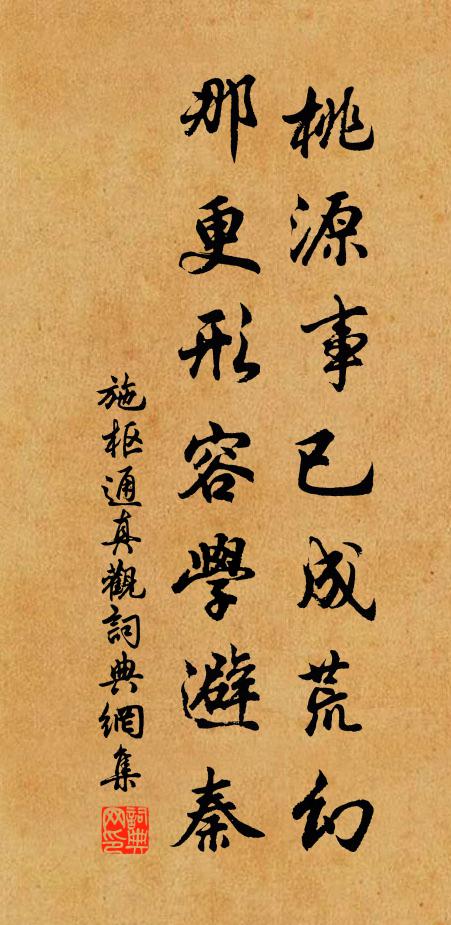 桃源事已成荒幻
那更形容學避秦
施枢通真觀詞典網集
詞典网印